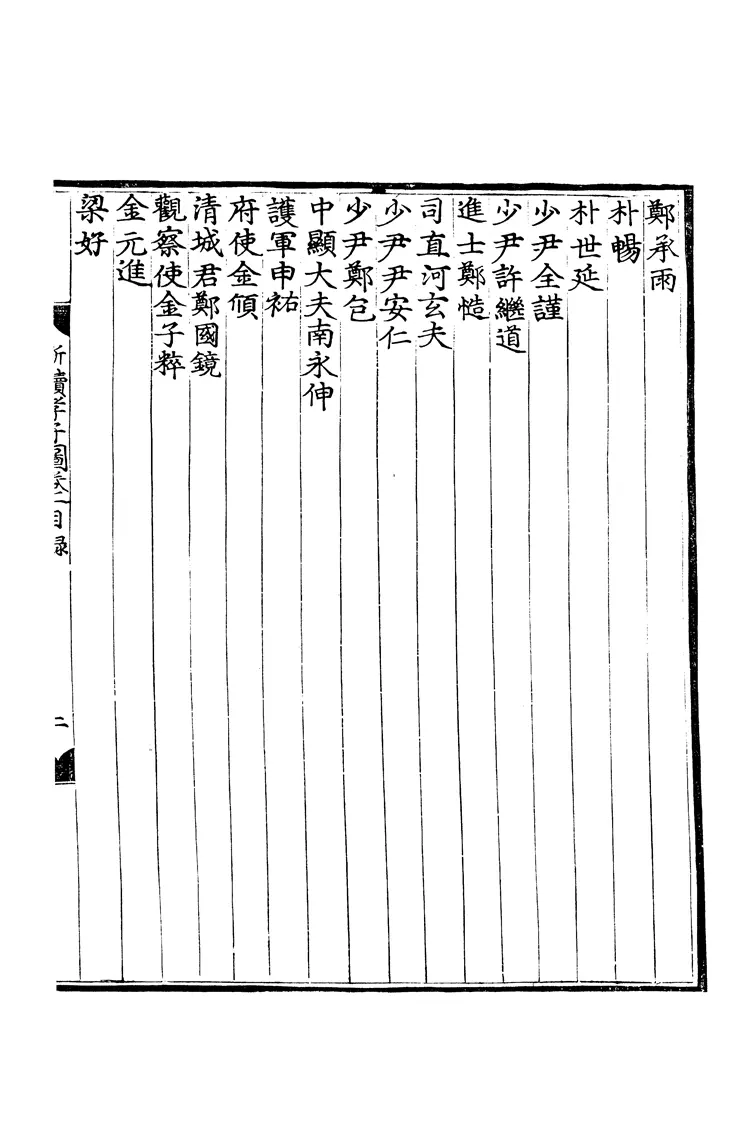 鄭承雨
朴暢
朴世延
少尹全謹
少尹許繼道
進士鄭慥
司直河玄夫
少尹尹安仁
少尹鄭包
中顯大夫南永伸
護軍申祐
府使金傾
清城君鄭國鏡
觀察使金子粹
金元進
梁好
續孝子圖卷二目録
二